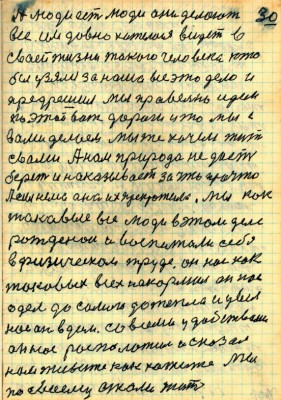 30
А люди ест люди они делают
все им довно хотелося видет в
своей жизни такого человека кто
бы узялся за наша все это дело и
предрешил мы правельно идем
по этой вот дороги что мы с
вами делаем мы не хочем жить
с вами А нам природа не даеть
берет и наказывает за то что
мы как
таковые все люди в этом деле
рожденои и воспитали себе
в физическом труде. он нас как
таковых всех накормил он нас
одел до самого до тепла и увел
нас он в дом. со всеми удобствами
он нас росположил и сказал
нам живите как хочете мы
по своему стали жит